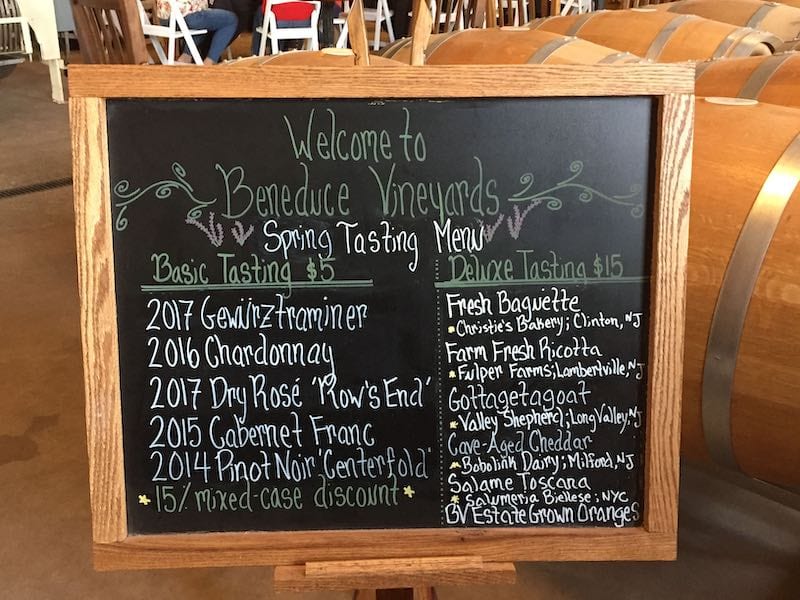 Welcome to
Beneduce Vineyards
Spring Tasting Menu
Basic Tasting $5
2017 Gewürztraminer
2016 Chardonnay
2017 Dry Rosé 'Row's End'
2015 Cabernet Franc
2014 Pinot Noir 'Centerfold'
15% mixed-case discount
Deluxe Tasting $15
Fresh Baguette
Christie's Bakery; Clinton, NJ
Farm Fresh Ricotta
Fulper Farms; Lambertville, NJ
Gottagetagoat
Valley Shepherd; Long Valley, NJ
Cave-Aged Cheddar
Bobolink Dairy; Milford, NJ
Salame Toscana
Salumeria Biellese; NYC
BV Estate Grown Oranges